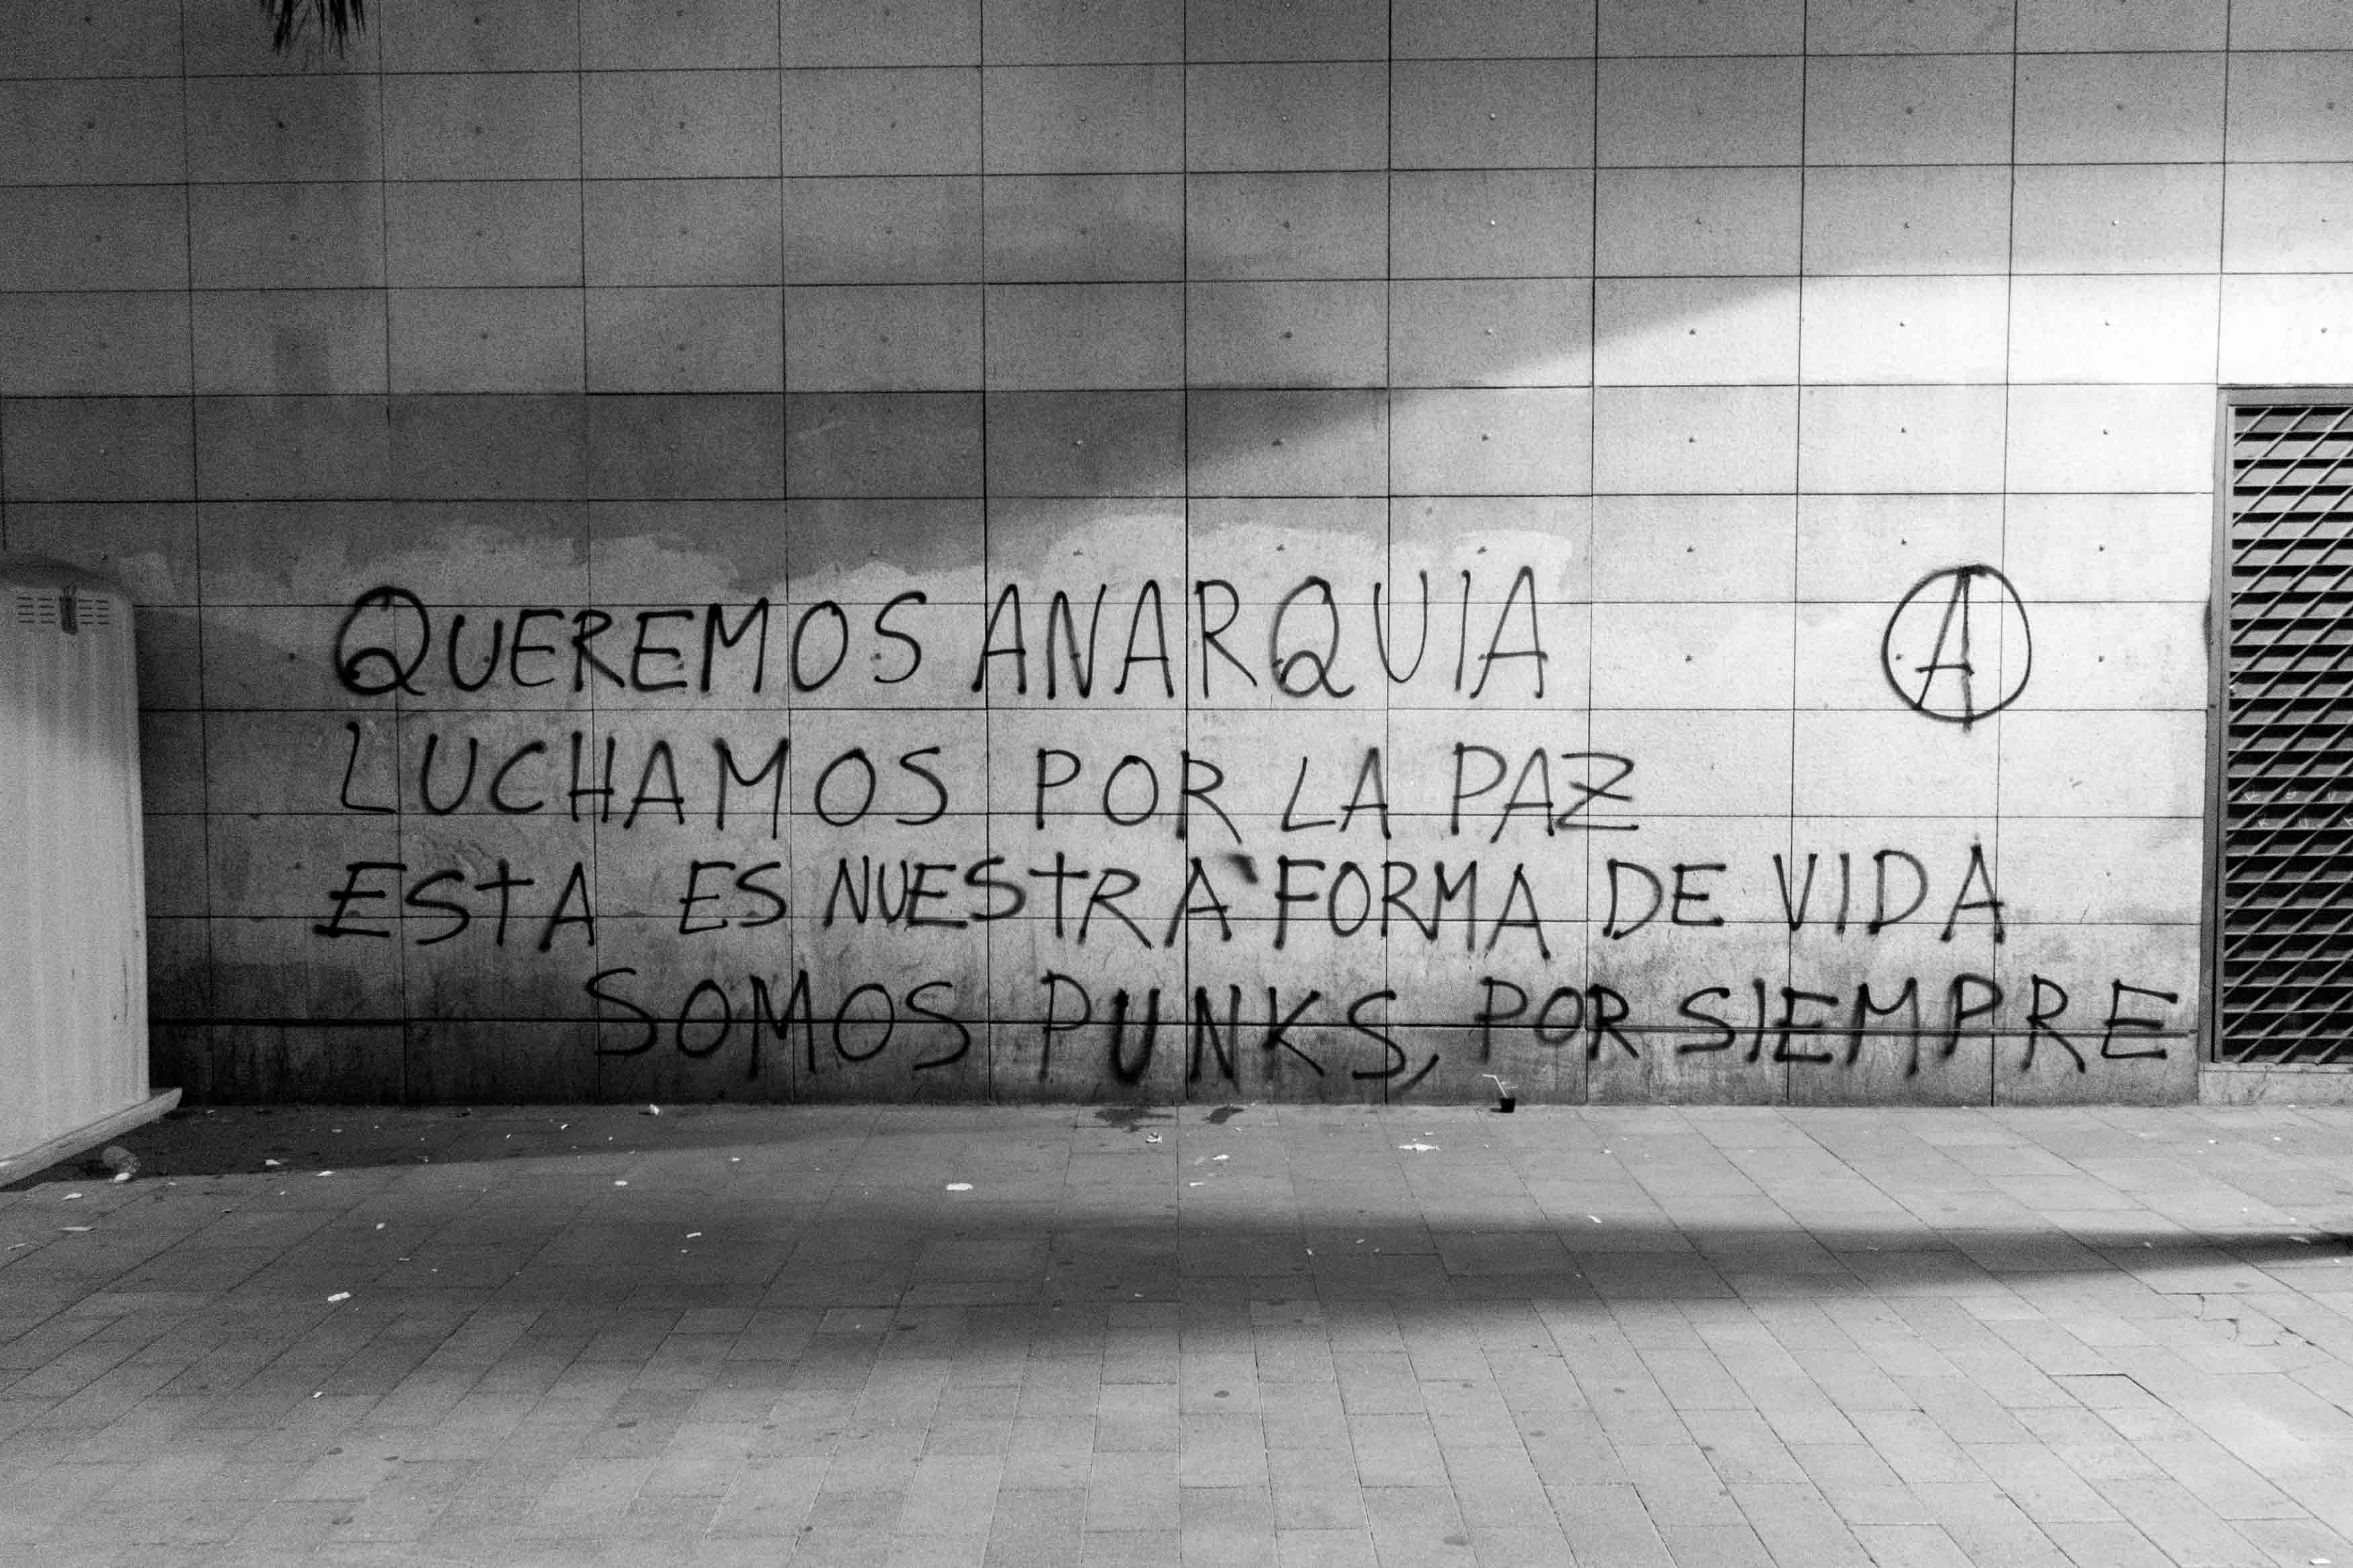 QUEREMOS ANARQUIA Ⓐ
LUCHAMOS POR LA PAZ
ESTA ES NUESTRA FORMA DE VIDA
SOMOS PUNKS, POR SIEMPRE